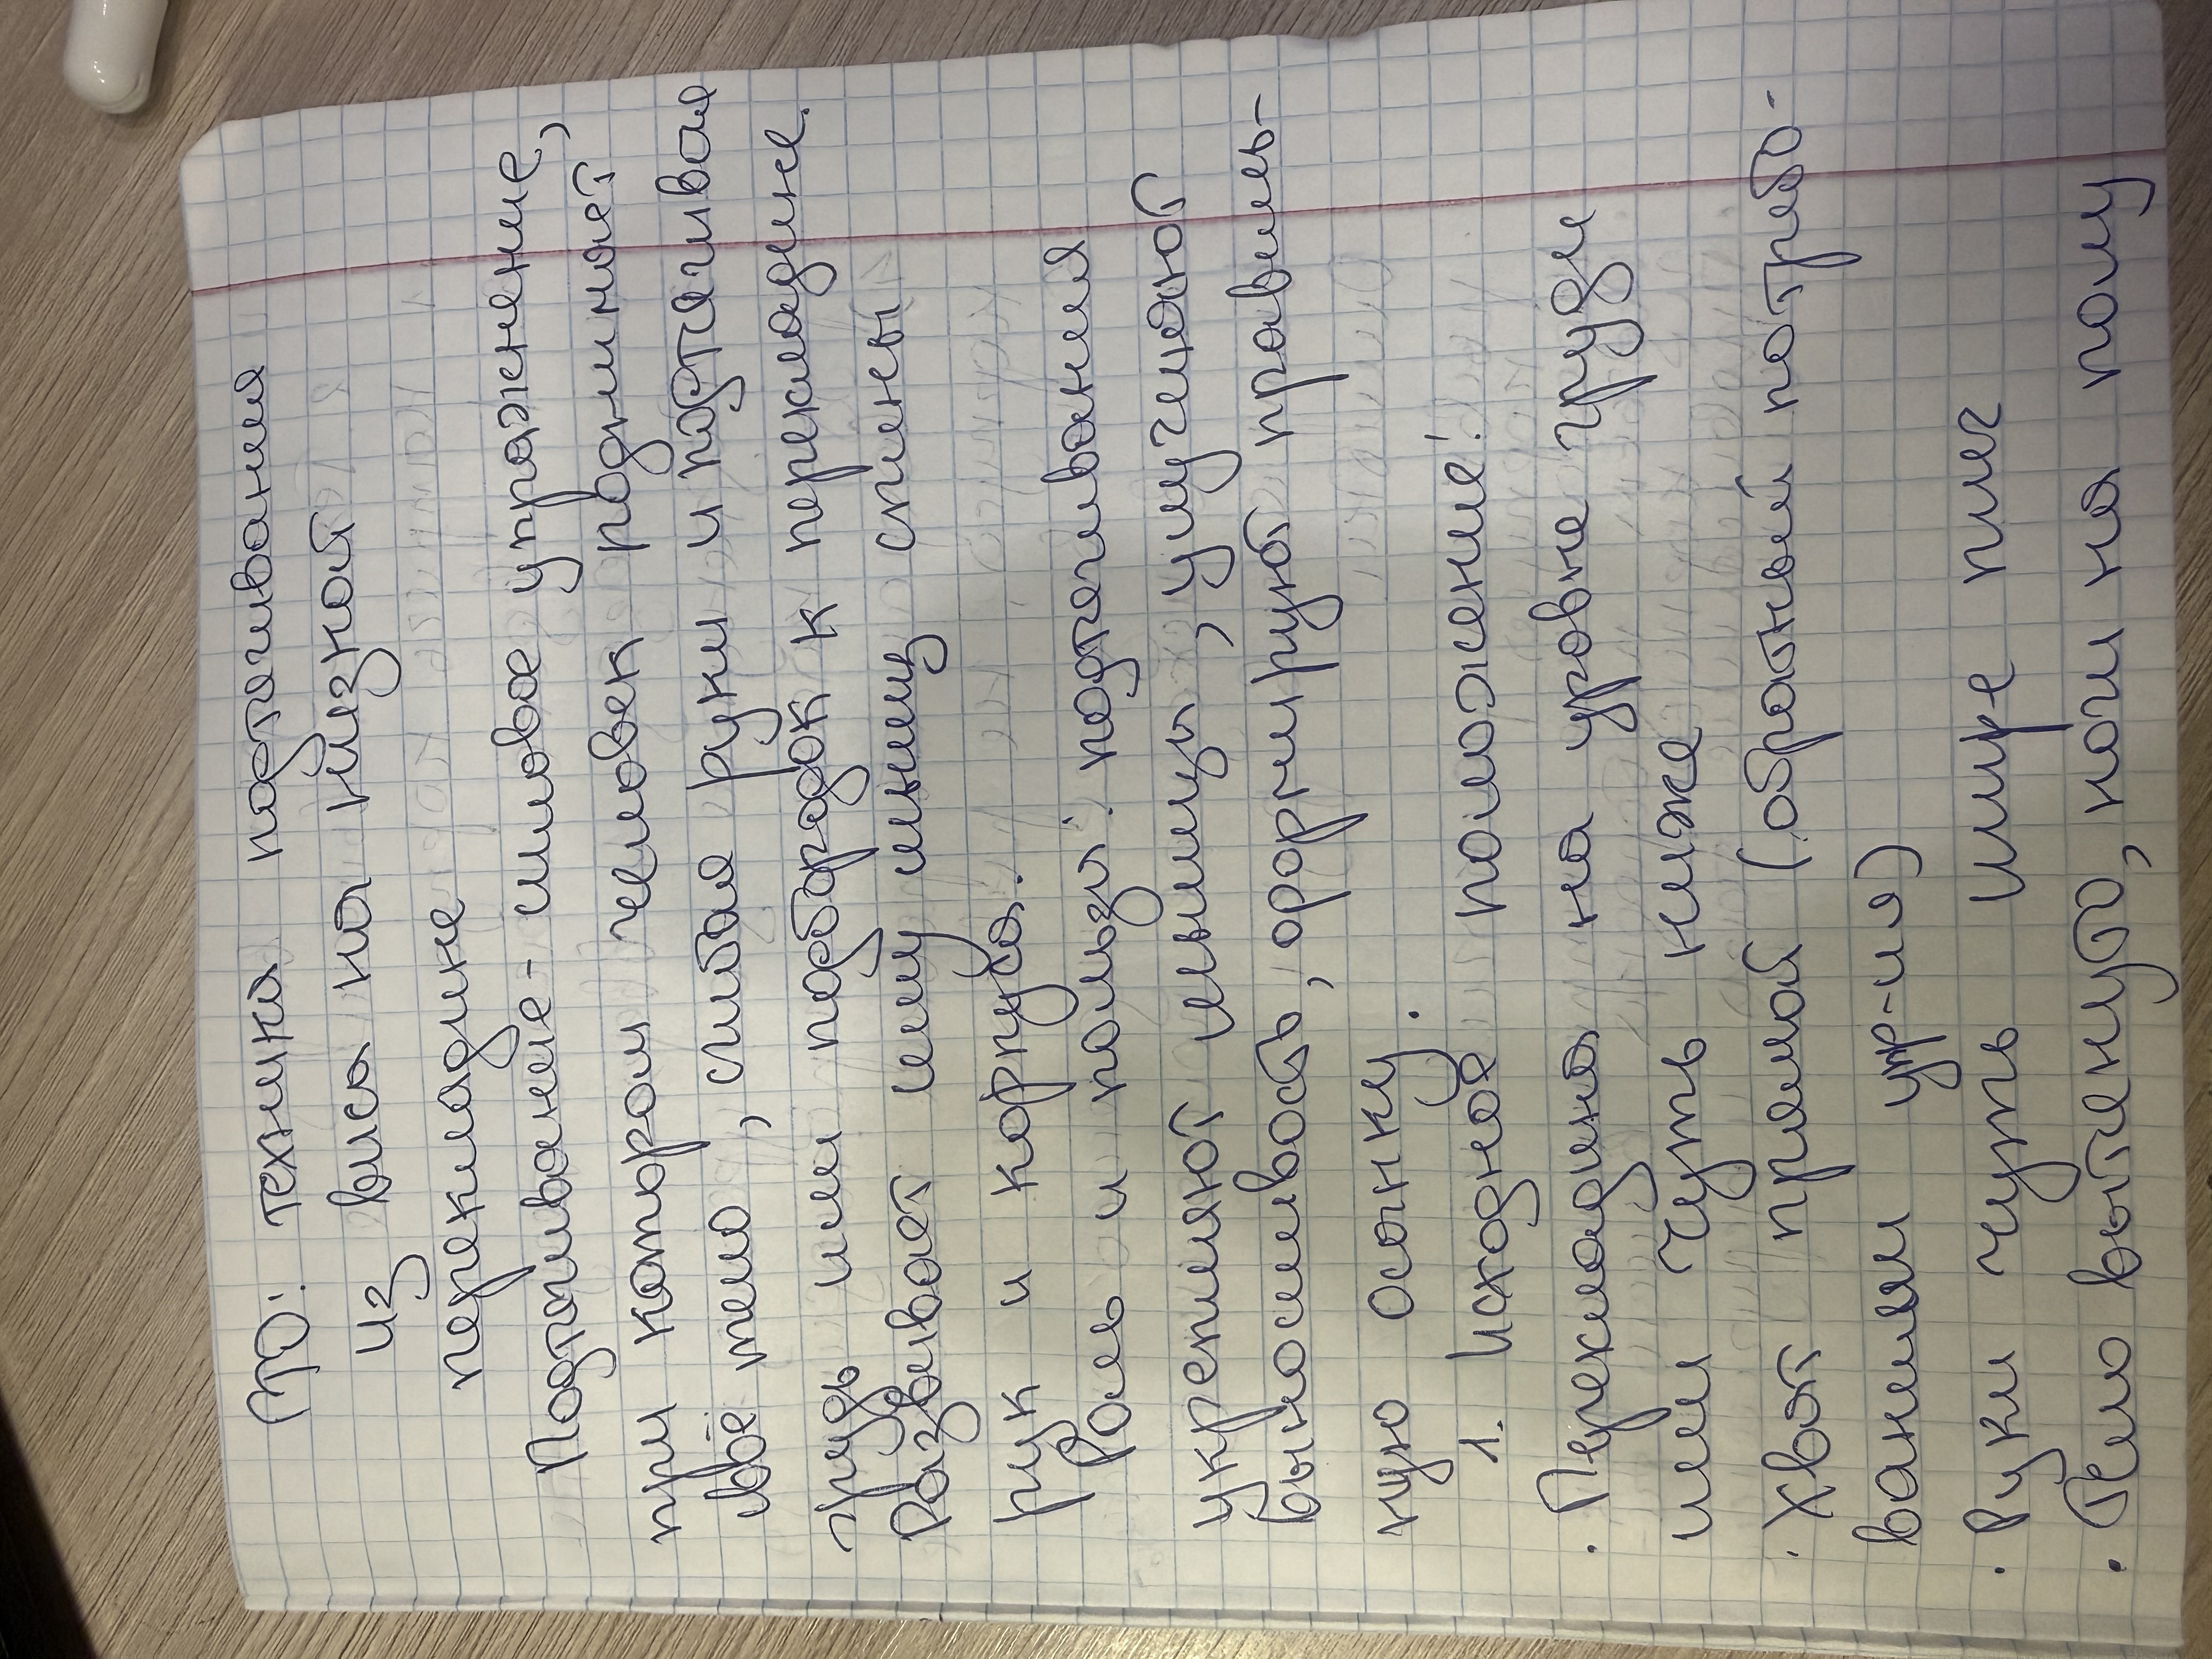 ПО: техника подтягивания
из виса на низкой
перекладине
Подтягивание - силовое упражнение,
при котором человек поднимает
своё тело, сгибая руки и подтягивая
грудь или подбородок к перекладине.
Развивает силу мышц спины
рук и корпуса.
Роль и польза: подтягивания
укрепляют мышцы, улучшают
выносливость, формируют правиль-
ную осанку.
1. Исходное положение:
· Перекладина на уровне груди
или чуть ниже
· Хват прямой (обратный по требо-
ваниям упр-ия)
· Руки чуть шире плеч
· Тело вытянуто, ноги на полу